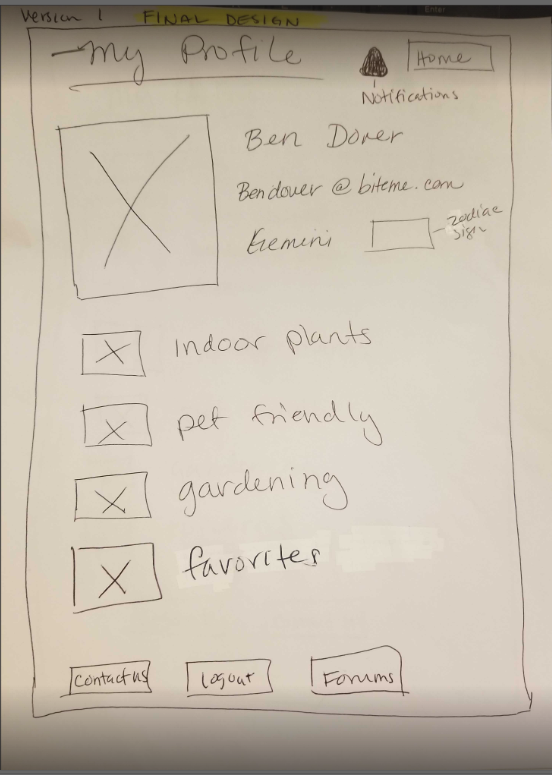 Version 1 FINAL DESIGN
My Profile
Home
Notifications
Ben Dover
Bendover @ biteme.com
Gemini
zodiac
sign
indoor plants
pet friendly
gardening
favorites
Contact us
Logout
Forums